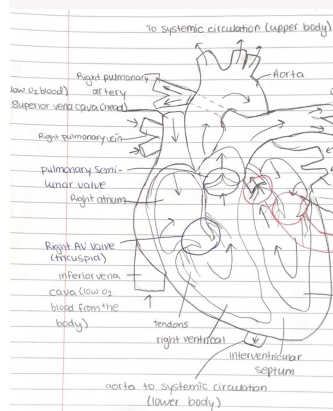 To systemic circulation (upper body)
Right pulmonary
artery
Aorta
low O2 blood)
Superior vena cava (head)
Right pulmonary vein
pulmonary semi-
lunar valve
Right atrium
Right AV valve
(tricuspid)
inferior vena
cava (low O2
blood from the
body)
tendons
right ventrical
interventricular
septum
aorta to systemic circulation
(lower body)